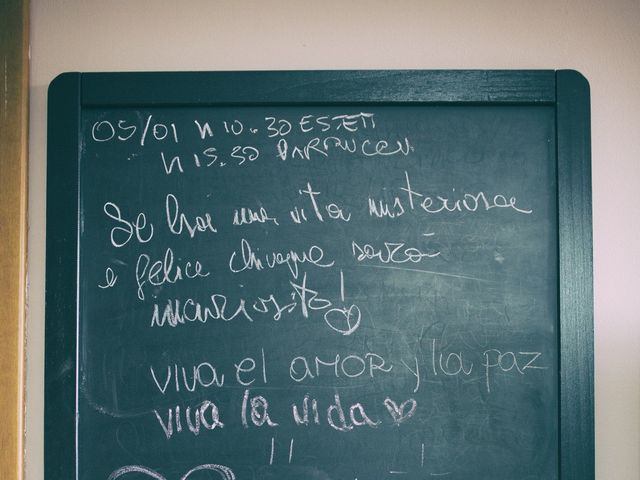 05/01 h 10.30 ESTETI
h 15.30 PARRUCCH.
Se hai una vita misteriosa
e felice chiunque sarà
incuriosito!
viva el AMOR y la paz
viva la vida